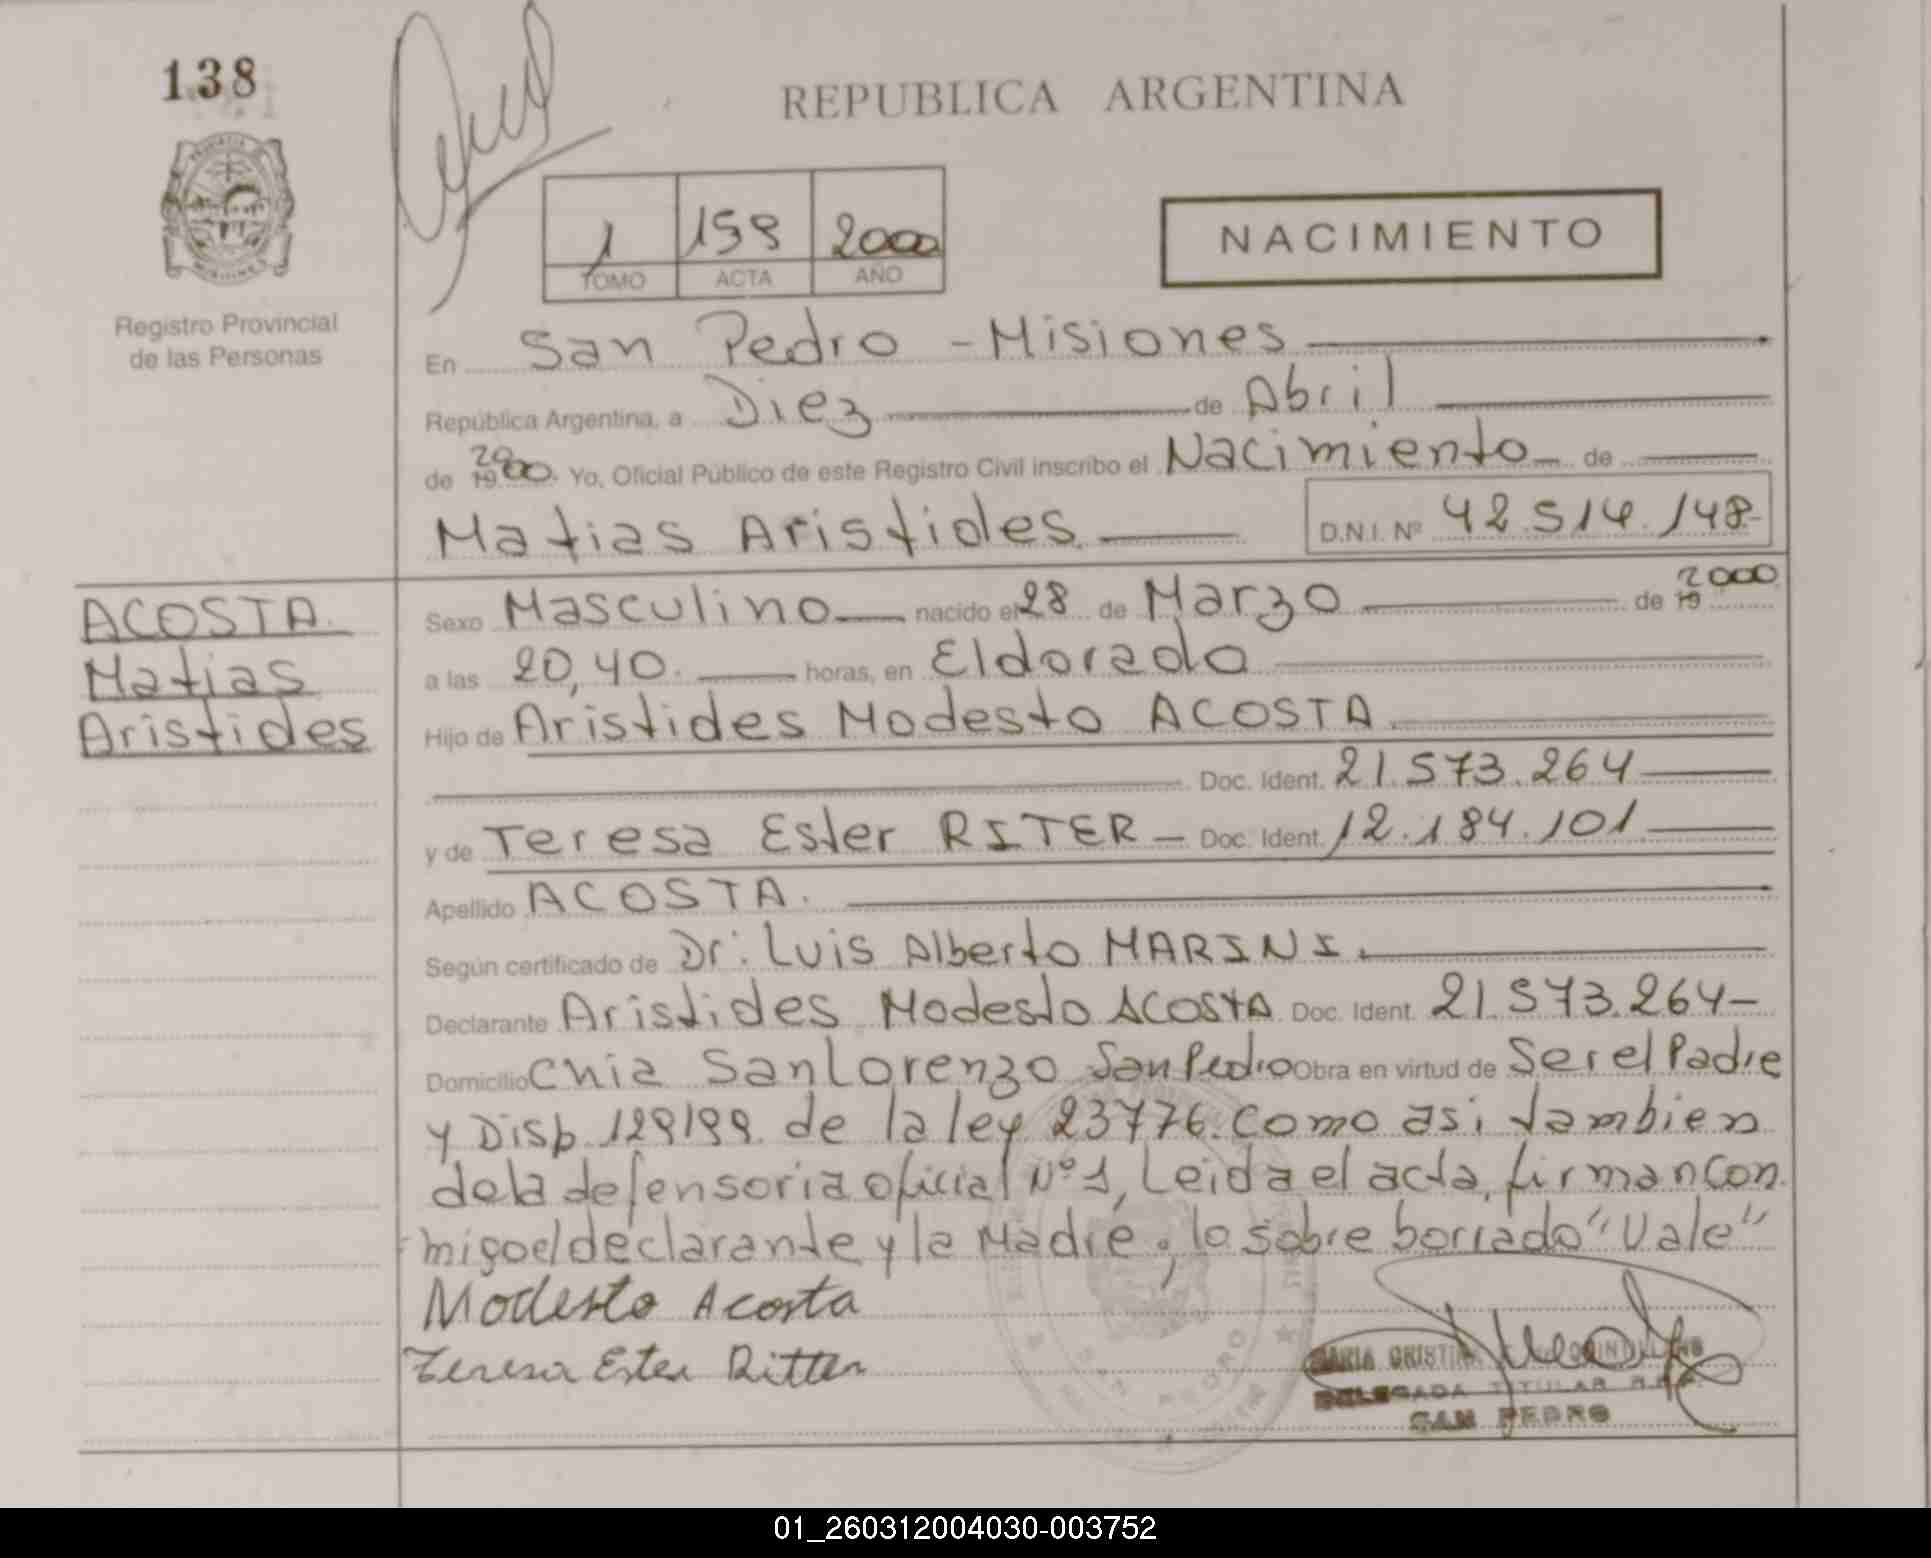 138
REPUBLICA ARGENTINA
1 159 2000
TOMO ACTA AÑO
NACIMIENTO
Registro Provincial
de las Personas
En San Pedro - Misiones
República Argentina, a Diez de Abril
de 19 2000. Yo, Oficial Público de este Registro Civil inscribo el Nacimiento de
Matias Aristides. D.N.I. Nº 42.514.148-
ACOSTA
Matias
Aristides
Sexo Masculino nacido el 28 de Marzo de 19 2000
a las 20,40. horas, en Eldorado
Hijo de Aristides Modesto ACOSTA
Doc. Ident. 21.573.264
y de Teresa Ester RITER - Doc. Ident. 12.184.101
Apellido ACOSTA.
Según certificado de Dr: Luis Alberto MARINI.
Declarante Aristides Modesto ACOSTA Doc. Ident. 21.573.264-
Domicilio Cnia San Lorenzo San Pedro Obra en virtud de Ser el Padre
y Disp. 129/99. de la ley 23776. Como asi tambien
de la defensoria oficial Nº 1, Leida el acta, firman con
migo el declarante y la Madre, lo sobre borrado "Vale"
Modesto Acosta
Teresa Ester Ritter
MARIA CRISTINA
DELEGADA TITULAR R.P.P.
SAN PEDRO
01_260312004030-003752